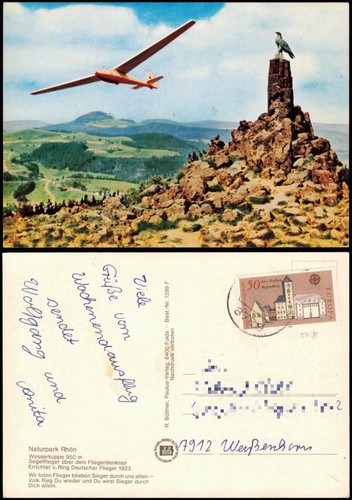 Viele
Grüße vom
Wochenendausflug
sendet
Wolfgang und
Anita
R. Büttner, Paulus-Verlag, 6400 Fulda - Best.-Nr. 1289 F
Nachdruck verboten
50
Altes Rathaus
Regensburg
EUROPA
7912 Weißenhorn
Naturpark Rhön
Wasserkuppe 950 m
Segelflieger über dem Fliegerdenkmal
Errichtet v. Ring Deutscher Flieger 1923
Wir toten Flieger blieben Sieger durch uns allein -
Volk flieg Du wieder und Du wirst Sieger durch
Dich allein.